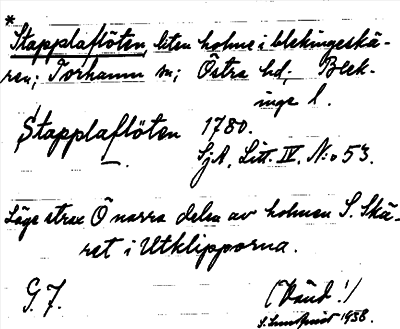 *
Stapplaflöten, liten holme i blekingeskä-
ren; Torhamn sn; Östra hd; Blek-
inge l.
Stapplaflöten 1780.
SjA. Litt. IV. N:o 53.
Läge strax Ö norra delen av holmen S. Skä-
ret i Utklipporna.
G. J. (Vänd!)
S. Lundquist 1938.